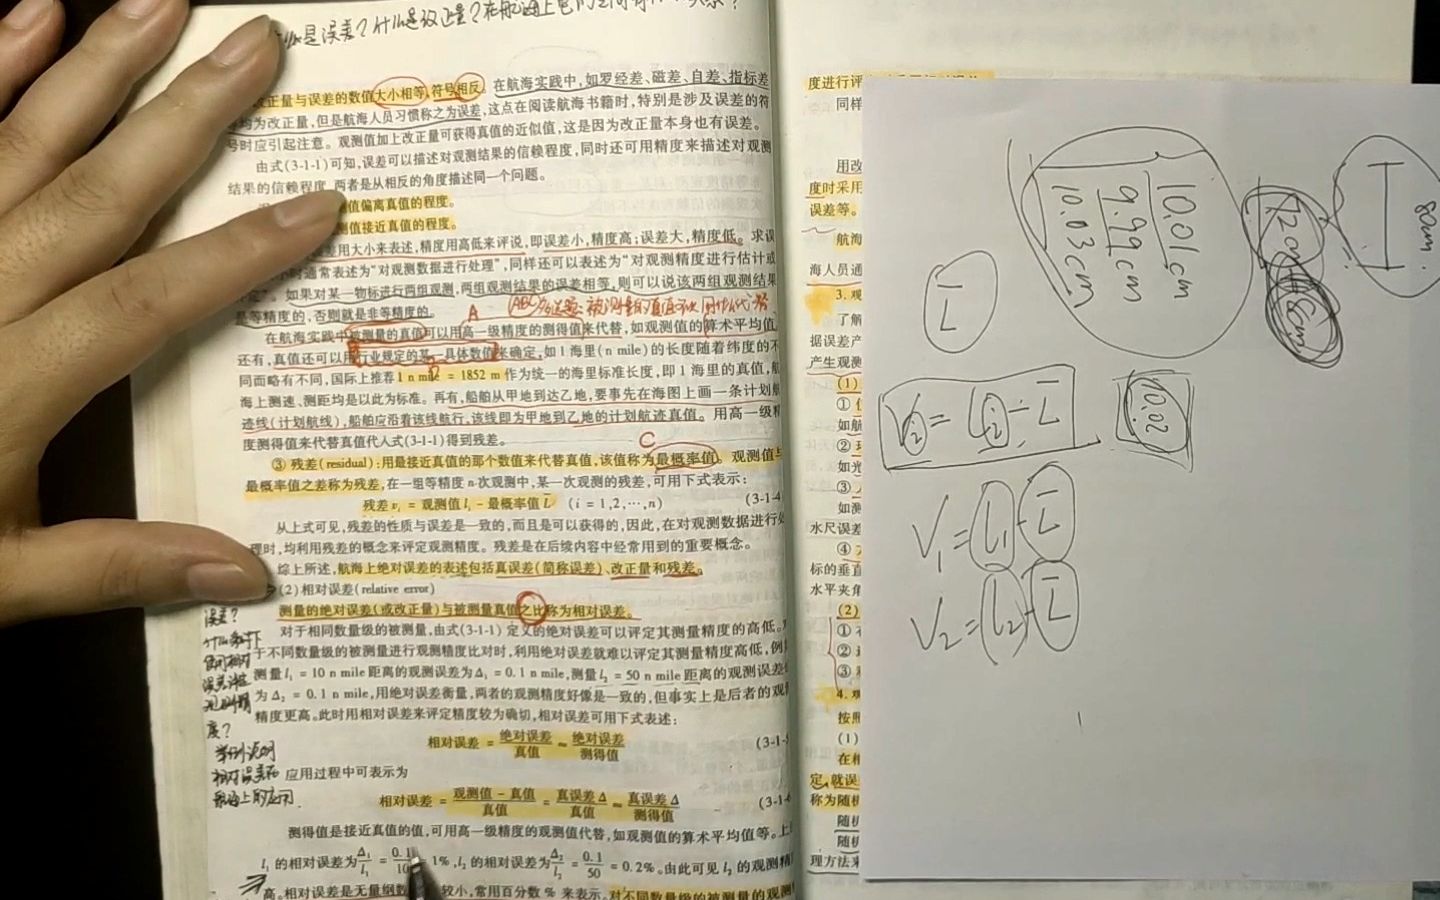 是误差?什么是改正量?在航海上
改正量与误差的数值大小相等,符号相反。在航海实践中,如罗经差、磁差、自差、指标差
均为改正量,但是航海人员习惯称之为误差,这点在阅读航海书籍时,特别是涉及误差的符
号时应引起注意。观测值加上改正量可获得真值的近似值,这是因为改正量本身也有误差。
由式(3-1-1)可知,误差可以描述对观测结果的信赖程度,同时还可用精度来描述对观测
结果的信赖程度,两者是从相反的角度描述同一个问题。
值偏离真值的程度。
测值接近真值的程度。
差用大小来表述,精度用高低来评说,即误差小,精度高;误差大,精度低。求误
小时通常表述为“对观测数据进行处理”,同样还可以表述为“对观测精度进行估计或
定”。如果对某一物标进行两组观测,两组观测结果的误差相等,则可以说该两组观测结果
是等精度的,否则就是非等精度的。
A
ABC 多选题:被测量的真值可以用什么代替
在航海实践中被测量的真值可以用高一级精度的测得值来代替,如观测值的算术平均值
还有,真值还可以用行业规定的某一具体数值来确定,如1海里(n mile)的长度随着纬度的不
同而略有不同,国际上推荐 1 n mile = 1852 m 作为统一的海里标准长度,即1海里的真值,航
海上测速、测距均是以此为标准。再有,船舶从甲地到达乙地,要事先在海图上画一条计划航
迹线(计划航线),船舶应沿着该线航行,该线即为甲地到乙地的计划航迹真值。用高一级精
度测得值来代替真值代入式(3-1-1)得到残差。
C
③ 残差(residual):用最接近真值的那个数值来代替真值,该值称为最概率值。观测值与
最概率值之差称为残差,在一组等精度n次观测中,某一次观测的残差,可用下式表示:
残差 vᵢ = 观测值 lᵢ - 最概率值 L̄ (i = 1,2,…,n) (3-1-4
从上式可见,残差的性质与误差是一致的,而且是可以获得的,因此,在对观测数据进行处
理时,均利用残差的概念来评定观测精度。残差是在后续内容中经常用到的重要概念。
综上所述,航海上绝对误差的表述包括真误差(简称误差)、改正量和残差。
(2)相对误差(relative error)
测量的绝对误差(或改正量)与被测量真值之比称为相对误差。
对于相同数量级的被测量,由式(3-1-1)定义的绝对误差可以评定其测量精度的高低。
于不同数量级的被测量进行观测精度比对时,利用绝对误差就难以评定其测量精度高低,例
测量 l₁ = 10 n mile 距离的观测误差为 Δ₁ = 0.1 n mile,测量 l₂ = 50 n mile 距离的观测误差
为 Δ₂ = 0.1 n mile,用绝对误差衡量,两者的观测精度好像是一致的,但事实上是后者的观
精度更高。此时用相对误差来评定精度较为确切,相对误差可用下式表述:
相对误差 = 绝对误差/真值 ≈ 绝对误差/测得值 (3-1-
应用过程中可表示为
相对误差 = 观测值 - 真值/真值 = 真误差 Δ/真值 ≈ 真误差 Δ/测得值 (3-1-
测得值是接近真值的值,可用高一级精度的观测值代替,如观测值的算术平均值等。上
l₁ 的相对误差为 Δ₁/l₁ = 0.1/10 = 1%,l₂ 的相对误差为 Δ₂/l₂ = 0.1/50 = 0.2%。由此可见 l₂ 的观测精
高。相对误差是无量纲数 较小,常用百分数 % 来表示。对不同数量级的被测量的观测
误差?
什么条件下
度?
举例说明
相对误差在
航海上的应用
度进行评
同样
用改
度时采用
误差等。
航海
海人员通
3. 观
了解
据误差产
产生观测
(1)
①
如航
②
如光
③
如测
水尺误差
④
标的垂直
水平夹角
(2)
①
②
③
4. 观
按照
(1)
在相
定,就误
称为随机
随机
随机
理方法来
10.01cm
9.99cm
10.03cm
80cm
L̄
Vᵢ = Lᵢ - L̄
10.02
V₁ = l₁ - L̄
V₂ = l₂ - L̄